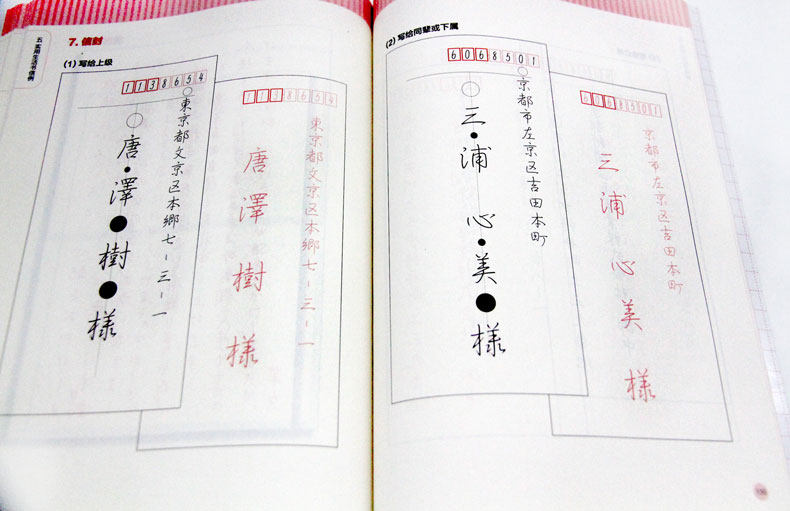 五 实用生活书信例
7. 信封
(1) 写给上级
1138654
東京都文京区本郷七-三-一
唐澤樹様
1138654
東京都文京区本郷七-三-一
唐澤樹様
(2) 写给同辈或下属
6068501
京都市左京区吉田本町
三浦 心美様
6068501
京都市左京区吉田本町
三浦心美様